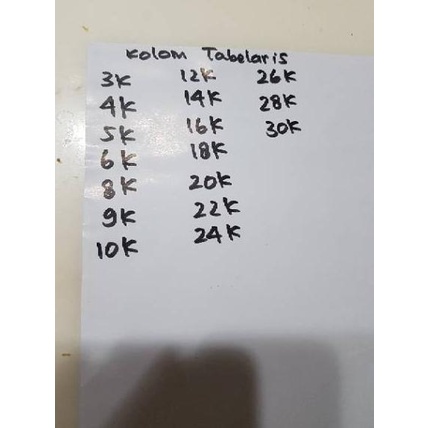 Kolom Tabelaris
3K 12K 26K
4K 14K 28K
5K 16K 30K
6K 18K
8K 20K
9K 22K
10K 24K